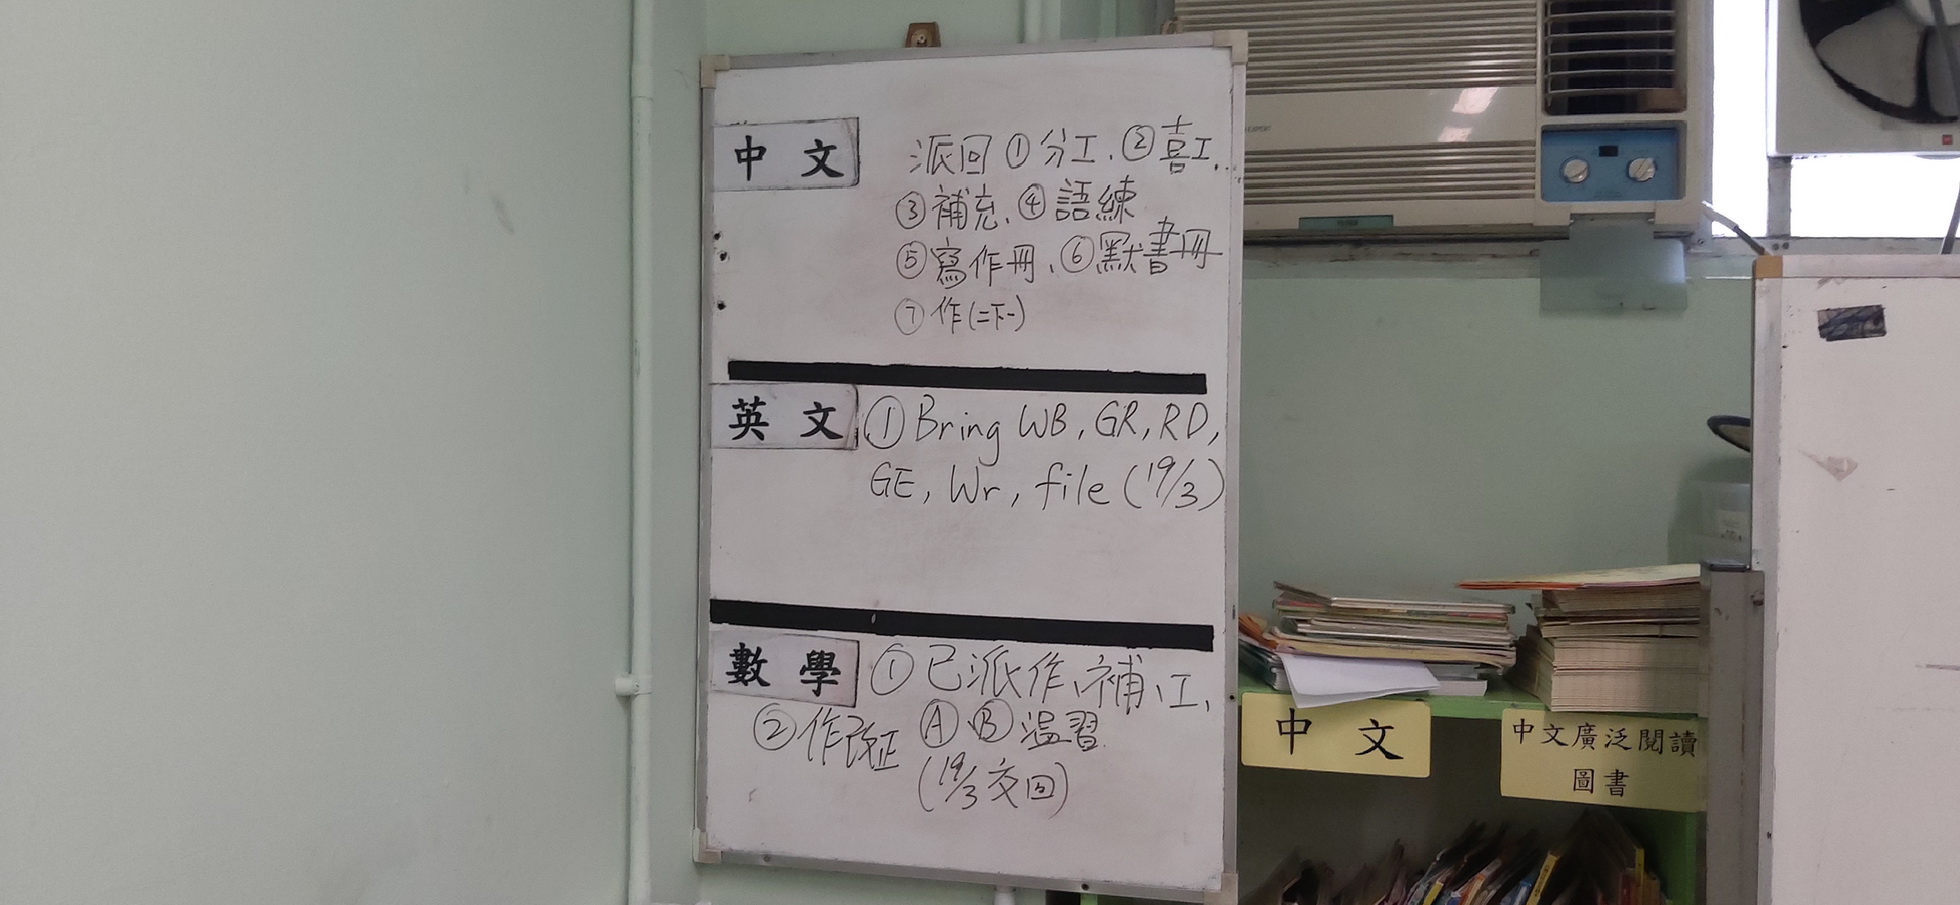 中文
派回①分工、②喜工、
③補充、④語練
⑤寫作冊、⑥默書冊
⑦作(二下一)
英文
①Bring WB, GR, RD,
GE, Wr, file (19/3)
數學
①已派作、補、工、
Ⓐ、Ⓑ溫習
②作改正
(19/3交回)
中文
中文廣泛閱讀
圖書